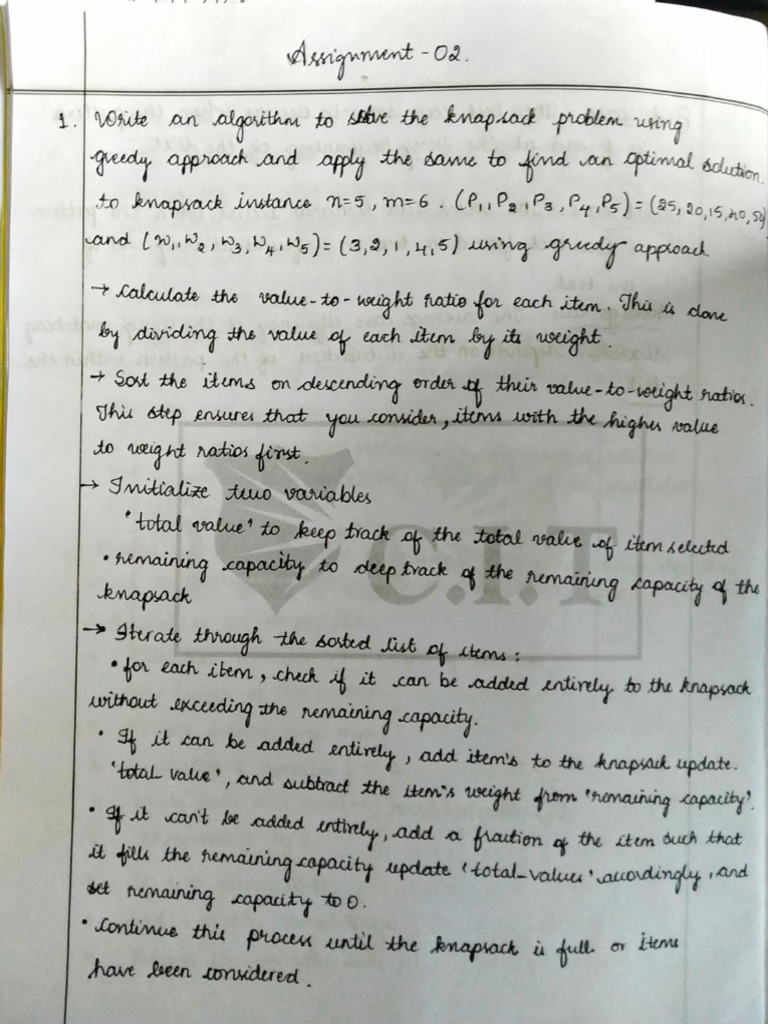 Assignment - 02.
1. Write an algorithm to solve the knapsack problem using
greedy approach and apply the same to find an optimal solution
to knapsack instance n=5, m=6. (P1, P2, P3, P4, P5) = (25, 20, 15, 40, 50)
and (w1, w2, w3, w4, w5) = (3, 2, 1, 4, 5) using greedy approach.
→ Calculate the value-to-weight ratio for each item. This is done
by dividing the value of each item by its weight.
→ Sort the items on descending order of their value-to-weight ratios.
This step ensures that you consider, items with the higher value
to weight ratios first.
→ Initialize two variables
'total value' to keep track of the total value of item selected
• remaining capacity to deep track of the remaining capacity of the
knapsack
→ Iterate through the sorted list of items:
• for each item, check if it can be added entirely to the knapsack
without exceeding the remaining capacity.
• If it can be added entirely, add item's to the knapsack update.
'total value', and subtract the item's weight from 'remaining capacity'.
• If it can't be added entirely, add a fraction of the item such that
it fills the remaining capacity update 'total-values' accordingly, and
set remaining capacity to 0.
• Continue this process until the knapsack is full or items
have been considered.
C.I.T